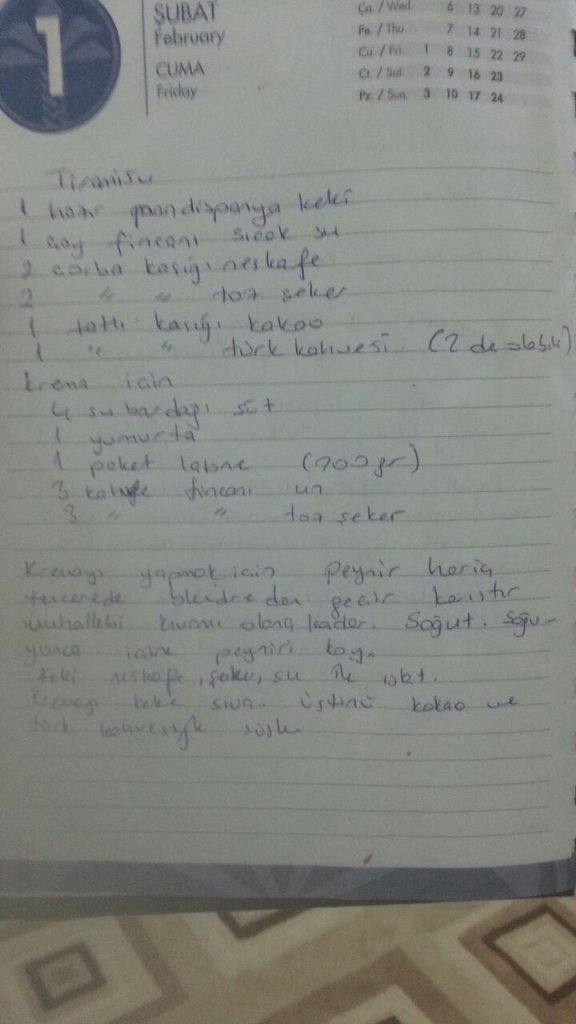 1
ŞUBAT
February
CUMA
Friday
Ça. / Wed. 6 13 20 27
Pe. / Thu. 7 14 21 28
Cu. / Fri. 1 8 15 22 29
Ct. / Sat. 2 9 16 23
Pz. / Sun. 3 10 17 24
Tiramisu
1 hazır pandispanya keki
1 çay fincanı sıcak su
2 çorba kaşığı neskafe
2 " " toz şeker
1 tatlı kaşığı kakao
1 " " türk kahvesi (2 de olabilir)
Krema için
4 su bardağı süt
1 yumurta
1 paket labne (200 gr)
3 kahve fincanı un
3 " " toz şeker
Kremayı yapmak için peynir hariç
tencerede blendreden geçir karıştır
muhallebi kıvamı olana kadar. Soğut. Soğu-
yunca labne peyniri koy.
Keki neskafe, şeker, su ile ıslat.
Kremayı keke sıva. Üstünü kakao ve
türk kahvesiyle süsle